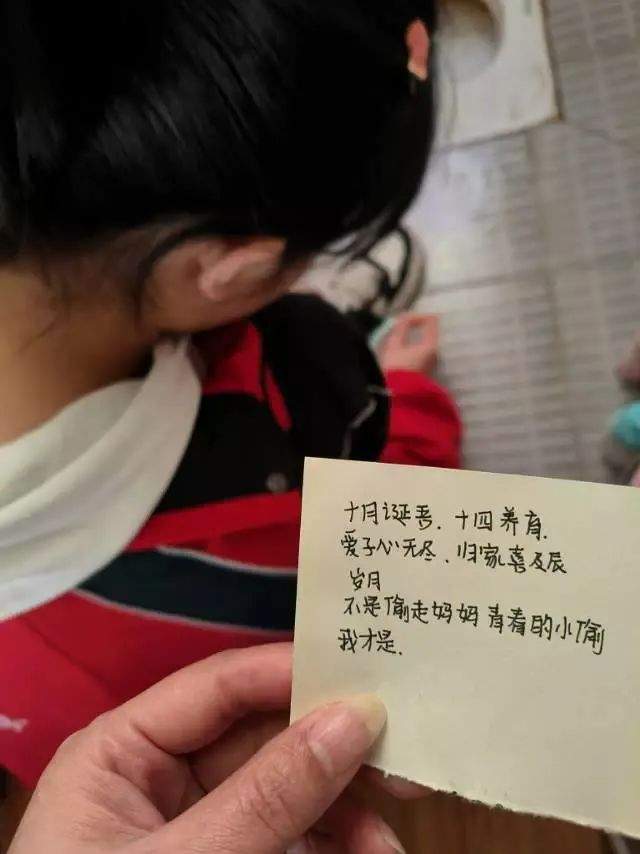 十月诞吾. 十四养育.
爱子心无尽. 归家喜及辰
岁月
不是偷走妈妈青春的小偷
我才是.